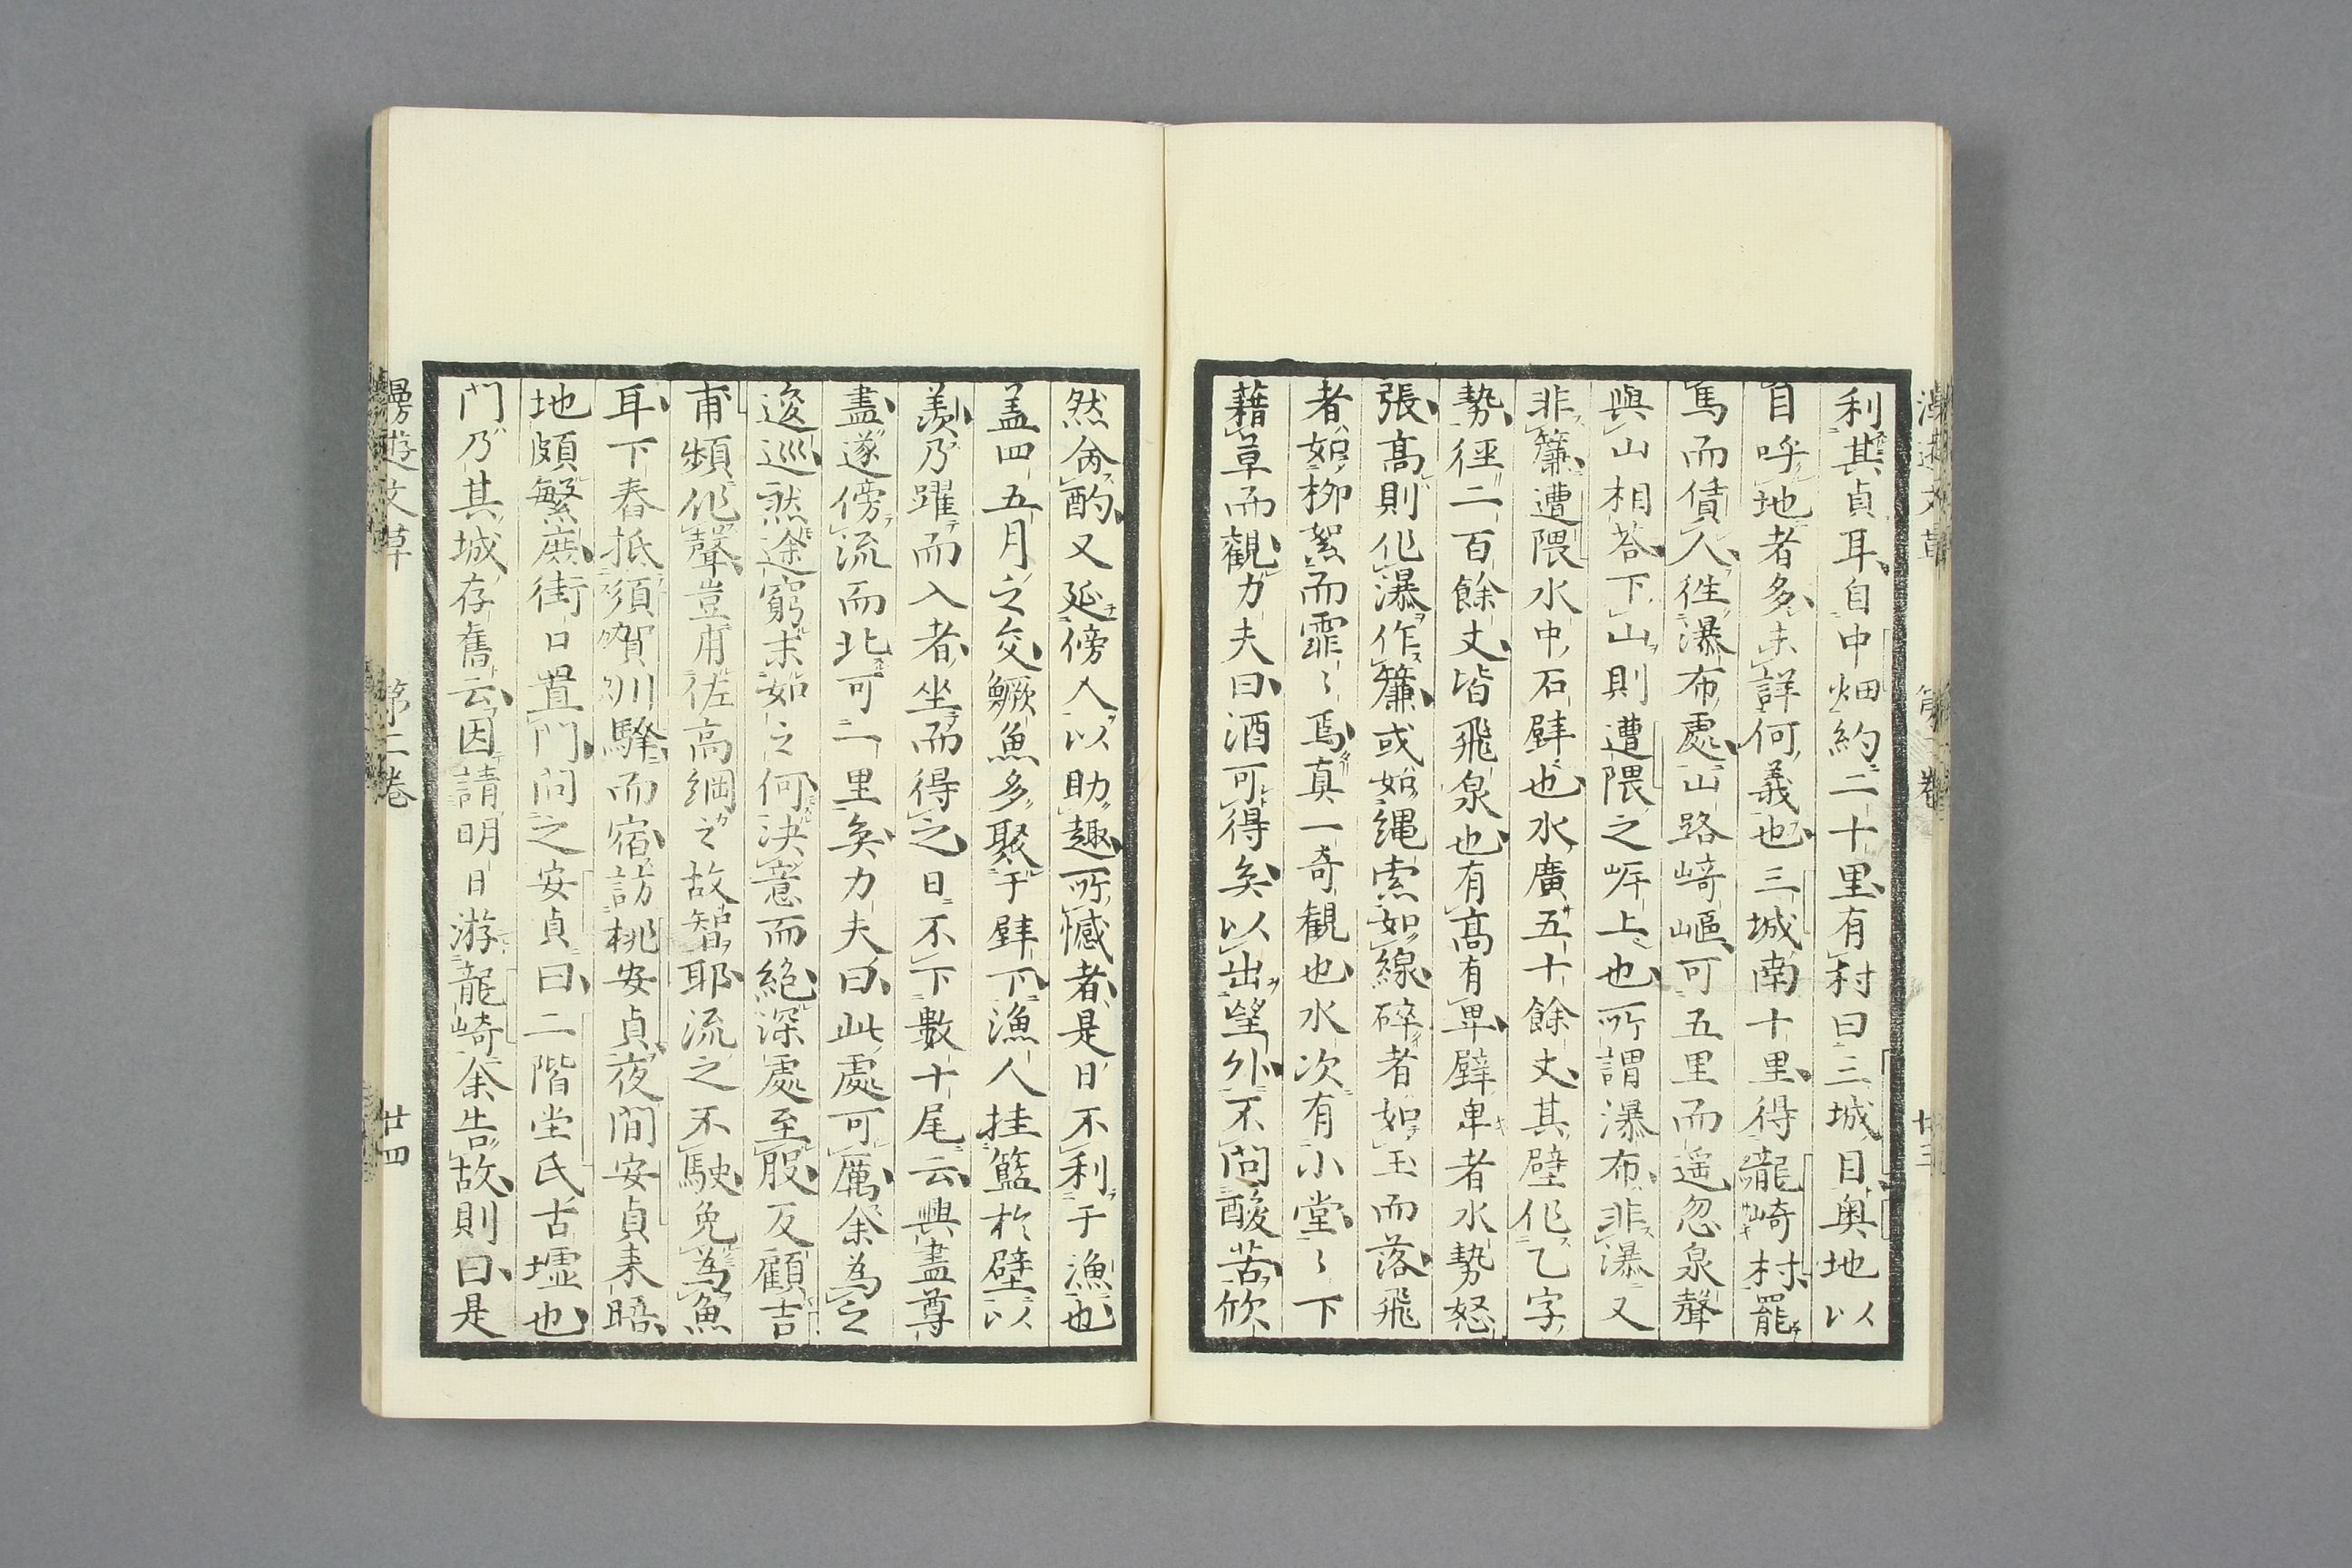 利其貞耳自中畑約二十里有村曰三城目奥地以
目呼地者多未詳何義也三城南十里得龍崎村罷
馬而僓人徃瀑布處山路崎嶇可五里而遥忽泉聲
與山相荅下山則遭隈之岸上也所謂瀑布非瀑又
非簾遭隈水中石壁也水廣五十餘丈其壁作乙字
勢徑二百餘丈皆飛泉也有高有卑壁卑者水勢怒
張高則作瀑作簾或如繩索如線碎者如玉而落飛
者如柳絮而霏〻焉真一奇觀也水次有小堂〻下
藉草而觀力夫曰酒可得矣以出望外不問酸苦欣
然命酌又延傍人以助趣所憾者是日不利于漁也
盖四五月之交鱖魚多聚于壁下漁人挂籃於壁以
羨乃躍而入者坐而得之日不下數十尾云興盡尊
盡遂傍流而北可二里矣力夫曰此處可厲余為之
逡巡然途窮末如之何決意而絶深處至股反顧吉
甫頻作聲豈甫佐高綱之故智耶流之不駛免為魚
耳下舂抵須賀川驛而宿訪桃安貞夜間安貞来晤
地頗繁庶街口置門問之安貞曰二階堂氏古墟也
門乃其城存舊云因請明日游龍崎余告故則曰是
漫遊文草　第二卷　廿三
漫遊文草　第二卷　廿四